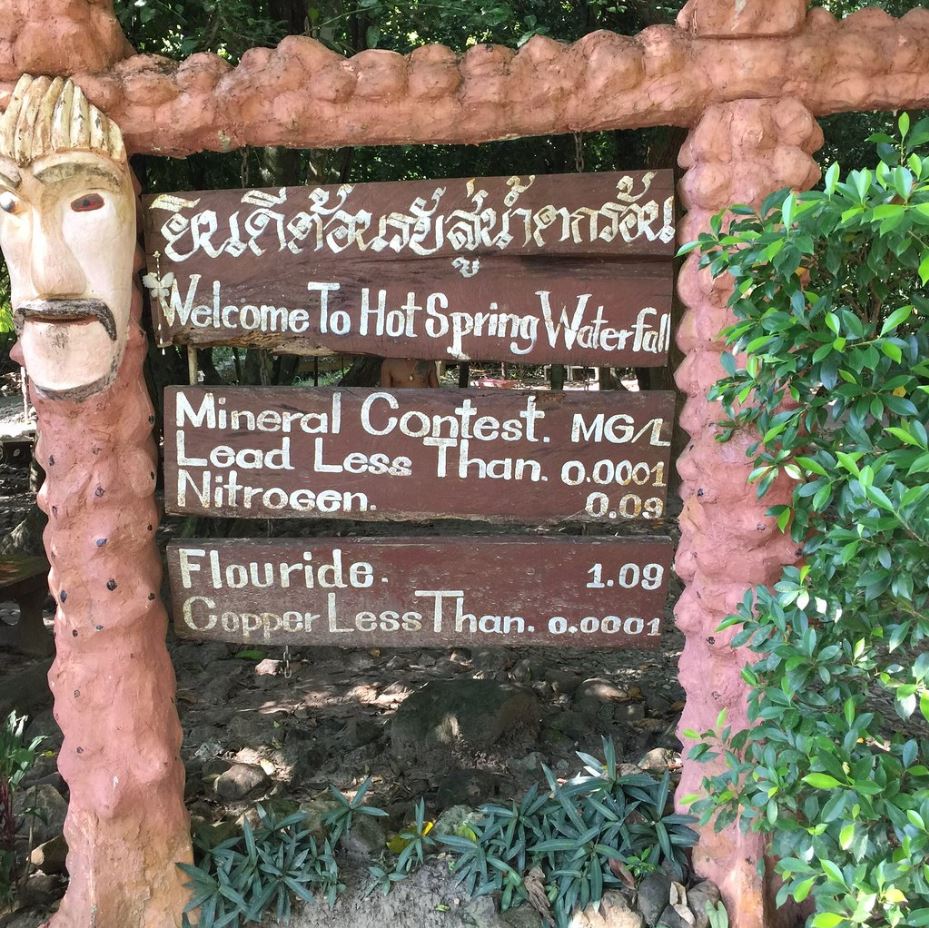 ยินดีต้อนรับสู่น้ำตกร้อน
Welcome To Hot Spring Waterfall
Mineral Contest. MG/L
Lead Less Than. 0.0001
Nitrogen. 0.09
Flouride. 1.09
Copper Less Than. 0.0001